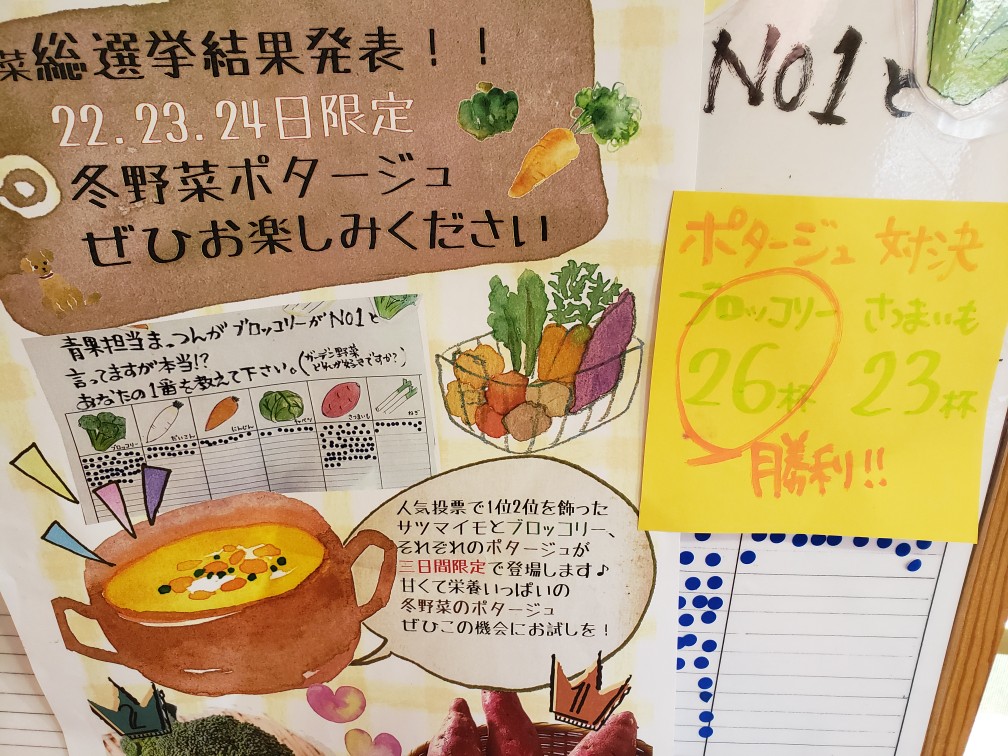 菜総選挙結果発表！！
22.23.24日限定
冬野菜ポタージュ
ぜひお楽しみください
青果担当まっつんがブロッコリーがNo1と
言ってますが本当!?
あなたの1番を教えて下さい。(ガーデン野菜どれが好きですか？)
ブロッコリー だいこん にんじん キャベツ さつまいも ねぎ
人気投票で1位2位を飾った
サツマイモとブロッコリー、
それぞれのポタージュが
三日間限定で登場します♪
甘くて栄養いっぱいの
冬野菜のポタージュ
ぜひこの機会にお試しを！
2
1
No1と
ポタージュ 対決
ブロッコリー さつまいも
26杯 23杯
勝利!!